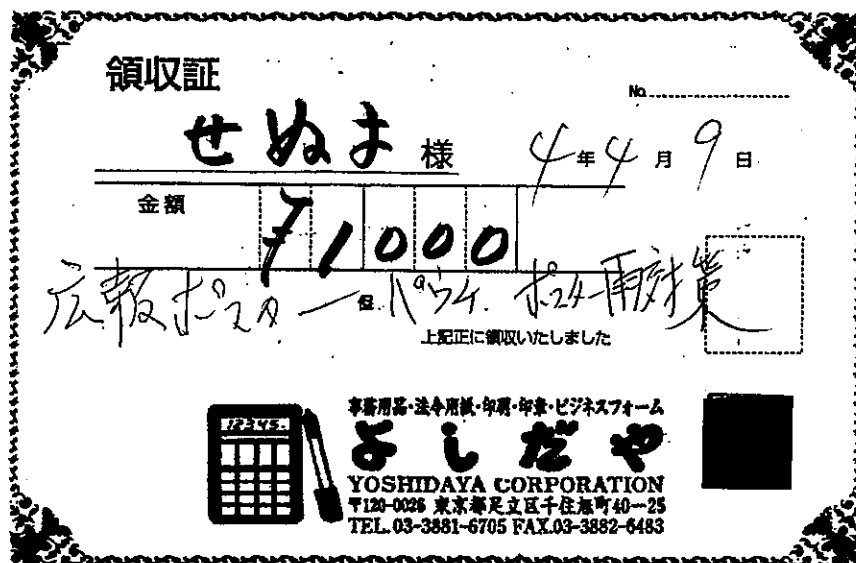 領収証
No.
せぬま 様 4年4月9日
金額 ¥1000
広報ポスター 但 パウチ. ポスター雨対策
上記正に領収いたしました
12345.
事務用品・法令用紙・印刷・印章・ビジネスフォーム
よしだや
YOSHIDAYA CORPORATION
〒120-0026 東京都足立区千住旭町40-25
TEL.03-3881-6705 FAX.03-3882-6483